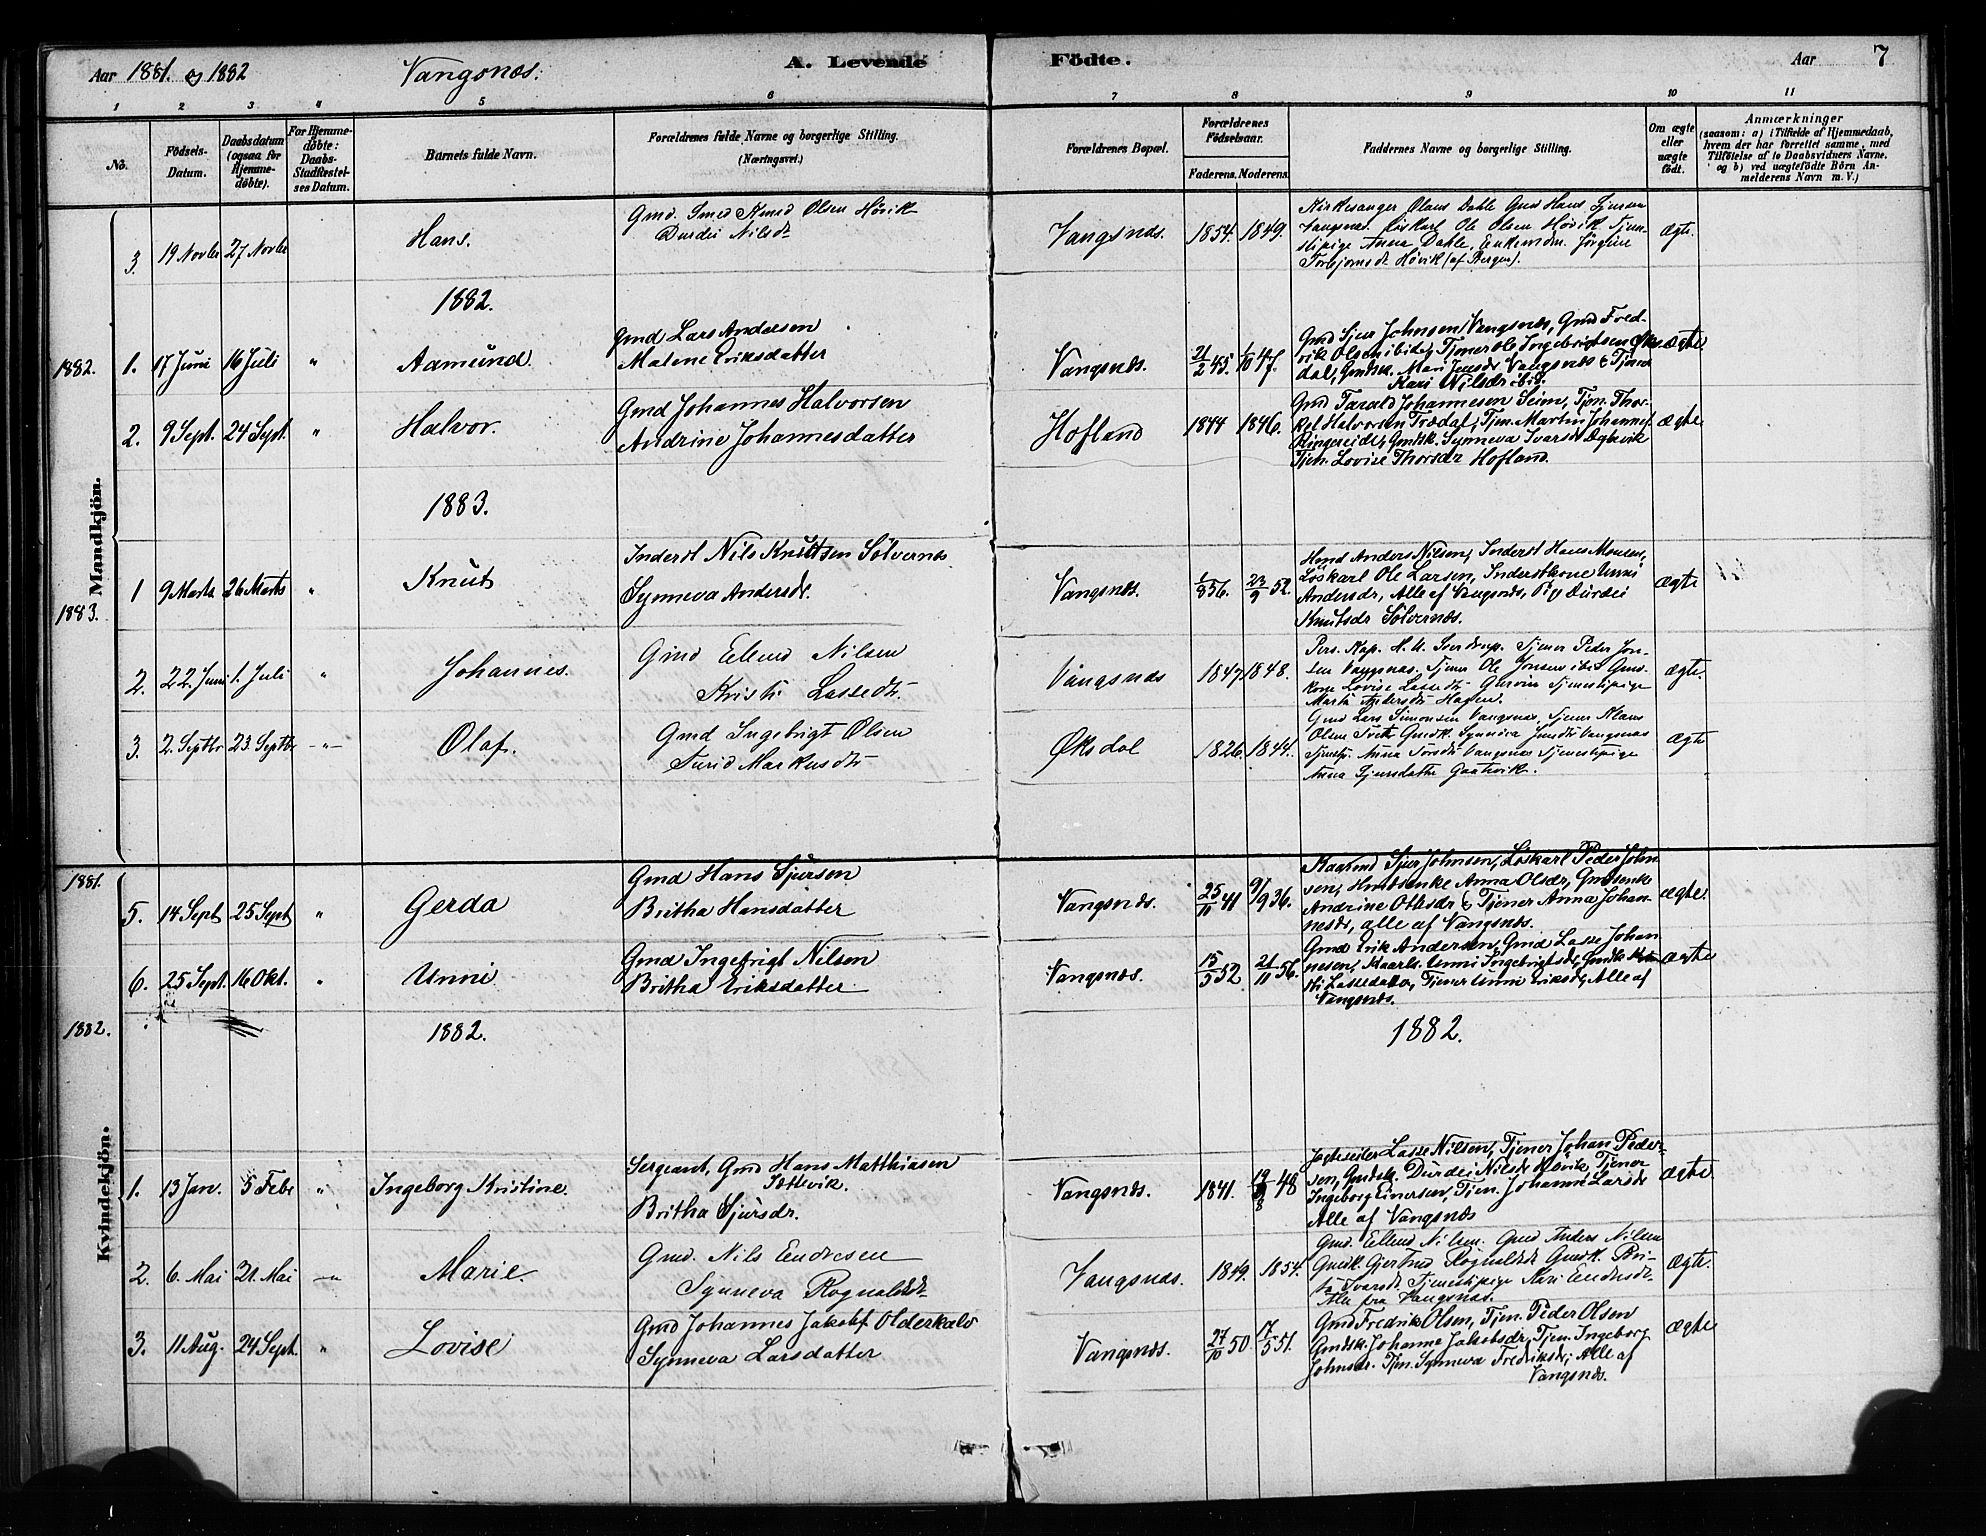 Aar 1881. og 1882 Vangsnæs. A. Levende Födte. Aar 7
1 2 3 4 5 6 7 8 9 10 11
No. Födsels-Datum. Daabsdatum (ogsaa for Hjemme-döbte). For Hjemme-döbte: Daabs-Stadfæstel-ses Datum. Barnets fulde Navn. Forældrenes fulde Navne og borgerlige Stilling. (Næringsvei.) Forældrenes Bopæl. Forældrenes Födselsaar. Faderens. Moderens. Faddernes Navne og borgerlige Stilling. Om ægte eller uægte födt. Anmærkninger
(saasom: a) i Tilfælde af Hjemmedaab,
hvem der har forrettet samme, med
Tilföielse af to Daabsvidners Navne.
og b) ved uægtefödte Börn An-
melderens Navn m. V.)
Mandkjön.
3. 19 Novbr 27 Novbr Hans. Gmd. Smed Knud Olsen Hövik
Durdei Nilsdt Vangsnæs. 1854. 1849. Kirkesanger Olaus Dahle Gmd Hans Sjursen
Vangsnæs. Löskarl Ole Olsen Hövik Tjene-
stepige Anna Dahle, Enkemdm. Jörgine
Torbjornsdt Hövik (af Bergen). Ægte.
1882.
1882. 1. 17 Juni 16 Juli " Aamund. Gmd Lars Andersen
Malene Eriksdatter Vangsnæs. 21/2 45. 1/10 47. Gmd Sjur Johnsen Vangsnæs, Gmd Fred-
rik Olsen ibid, Tjener Ole Ingebrigtsen Øks-
dal, Gmdsk. Mari Jensdr Vangsnæs & Tjener
Kari Nilsdr ibid. Ægte
2. 9 Sept. 24 Sept. " Halvor. Gmd Johannes Halvorsen
Andrine Johannesdatter Hofland 1844 1846. Gmd Tarald Johannesen Seim, Tjen. Thor-
kel Halvorsen Trædal, Tjen. Martin Johannes
Ringereide, Gmdsk. Synneva Ivarsdr
Tjen. Lovise Thorsdr Hofland. Ægte
1883.
1883. 1 9 Marts 26 Marts " Knut Inderst Nils Knutsen Sölvernæs
Synneva Andersdr. Vangsnæs. 1/8 56. 23/9 52. Anders Nilsen, Inderst Hans Monsen,
Löskarl Ole Larsen, Inderstkone Unni
Andersdr, Alle af Vangsnæs, Pig Durdei
Knutsdr Sölvernæs. Ægte
2. 22. Juni 1. Juli " Johannes. Gmd Ellend Nilsen
Kristi Lassedtr. Vangsnæs 1847 1848. Pers. Kap. H. U. Sverdrup. Tjener Peder Jon-
sen Vangsnæs. Tjener Ole Jonsen ibid Gmds-
kone Lovise Lassedtr Tjenestepige
Marta Andersdt Hagen. Ægte.
3. 2. Septbr 23. Septbr -"- Olaf. Gmd Ingebrigt Olsen
Turid Markusdtr Øksdal 1826. 1844. Gmd Lars Simonsen Vangsnæs, Tjener Klaus
Olsen Tveit Gmdk. Synneva Jensdt Vangsnæs
Tjenestp. Anna Vangsnæs Tjenestepige
Anna Sjursdatter. Ægte
Kvindekjön.
1881. 5. 14 Sept 25 Sept " Gerda Gmd Hans Sjursen
Britha Hansdatter Vangsnæs. 25/11 41 9/9 36. Kaarmd Sjur Johnsen, Löskarl Peder John-
sen, Husmdsenke Anna Olsdr, Gmdsenke
Andrine Ottesdr & Tjener Anna Johan-
nesdr, alle af Vangsnæs. Ægte.
6. 25 Sept. 16 Okt. " Unni Gmd Ingebrigt Nilsen
Britha Eriksdatter Vangsnæs. 15/5 52. 21/11 56. Gmd Erik Andersen, Gmd Lasse Johan-
nesen, Kaark. Unni Ingebrigtsdr, Gmdk
Lassedatter, Tjener Unni Eriksdr, Alle af
Vangsnæs. Ægte
1882. 1882. 1882.
1. 13 Jan. 5 Febr " Ingeborg Kristine. Sergeant, Gmd Hans Matthiasen
Sættevik.
Britha Sjursdr. Vangsnæs. 1841. 48 Jagteseiler Lasse Nilsen, Tjener Johan Peder-
sen, Gmdsk. Durdei Nilsdr Hövik, Tjener
Ingeborg Einersen, Tjen. Johanne Larsdr
Alle af Vangsnæs Ægte.
2. 6. Mai 21. Mai Marie. Gmd. Nils Endresen
Synneva Rognaldsdt. Vangsnæs. 1849. 1854. Gmd. Ellend Nilsen. Gmd Anders Nilsen
Gmdk. Gjertrud Rognaldsdt Gmdk. Bri-
ta Ivarsdt Tjenestepige Kari Endresdt
Alle fra Vangsnæs. Ægte.
3. 11 Aug. 24 Sept. " Lovise Gmd Johannes Jakobs Olderkalv
Synneva Larsdatter Vangsnæs. 27/10 50. 17/5 51. Gmd Fredrik Olsen, Tjen. Peder Olsen
Gmdsk. Johanne Jakobsdr, Tjen. Ingeborg
Johnsdr. Tjen. Synneva Fredriksdr, Alle af
Vangsnæs. Ægte